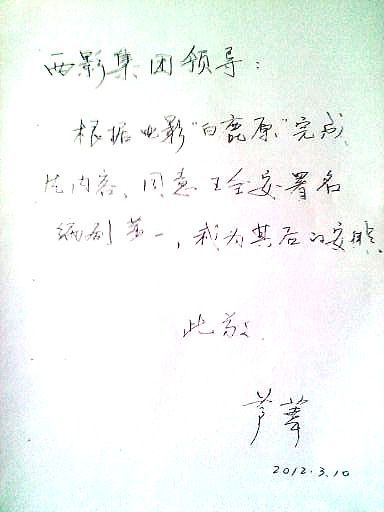 西影集团领导：
根据电影“白鹿原”完成
片内容，同意王全安署名
编剧第一，我为其后的安排。
此致
芦苇
2012.3.10